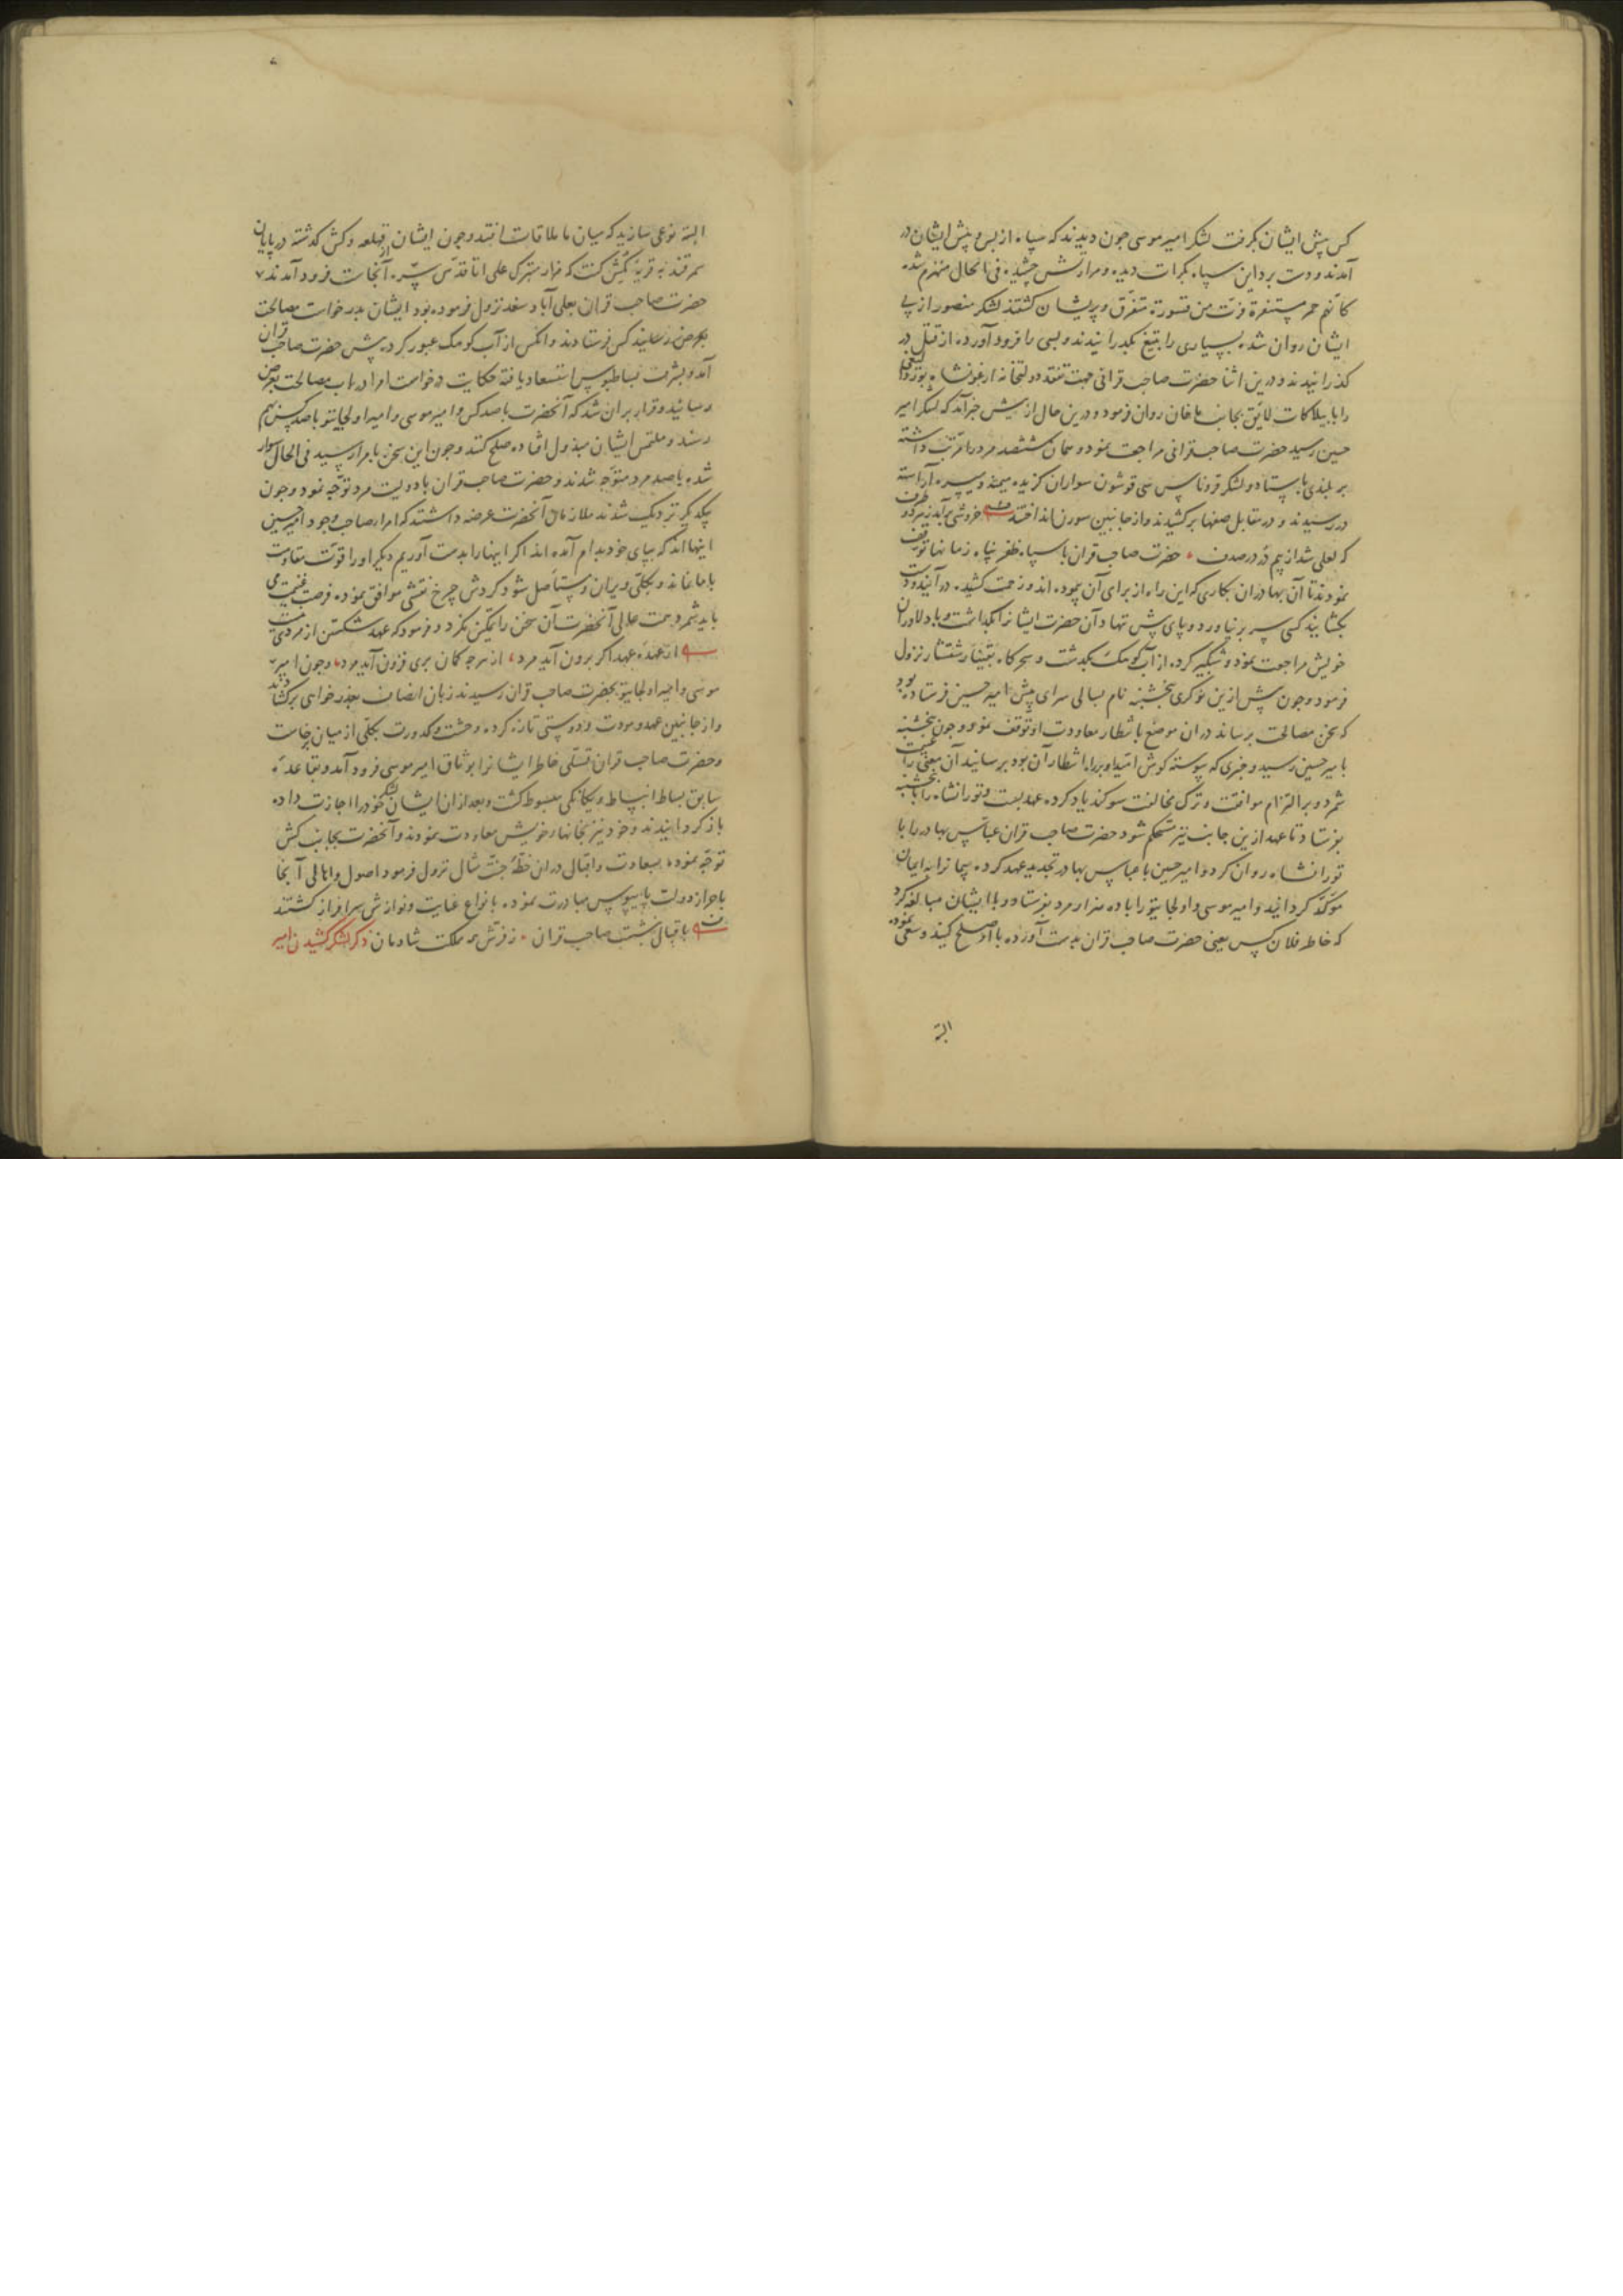 کس پیش ایشان بگرفت لشکر امیر موسی چون دیدند که سپاه از پس و پیش ایشان در
آمدند و دست برد این سپاه بکرات دیده و مرارتش چشیده فی الحال منهزم شده
کانهم حمر مستنفرة فرت من قسورة متفرق و پریشان گشتند لشکر منصور از پی
ایشان روان شده بسیاری را بتیغ بگذرانیدند و بسی را فرود آورده از قتل در
گذرانیدند و درین اثنا حضرت صاحب قرانی جهت تفقد دولتخانه ارغونشاه
را با بیلاکات لایق بجانب ماخان روان فرمود و درین حال از پیش خبر آمد که لشکر امیر
حسین رسید حضرت صاحب قرانی مراجعت نمود و همان ششصد مرد را مرتب داشته
بر بلندی بایستاد و لشکر قروناس سی قوشون سواران گزیده میمنه و میسره آراسته
در رسیدند و در مقابل صفها برکشیدند و از جانبین سورن انداختند خروشی برآمد ز هر دو طرف
که لعلی شد از بیم در در صدف حضرت صاحب قران با سپاه ظفر پناه زمانها توقف
نمودند تا آن بهادران بکاری که این راه از برای آن پیموده اند و زحمت کشیده در آیند و دست
بگشایند کسی سر بر نیاورد و پای پیش ننهاد آن حضرت ایشانرا بگذاشت و با دلاوران
خویش مراجعت نمود و شبگیر کرده از آب کومک بگذشت و سحرگاه نزول
فرمود و چون پیش ازین نوکری پنجشنبه نام بسالی سرای پیش امیر حسین فرستاده بود
که سخن مصالحت برساند در ان موضع بانتظار معاودت او توقف نمود و چون پنجشنبه
بامیر حسین رسید و خبری که پیوسته گوش امید او براه انتظار آن بود برسانید آن معنی را غنیمت
شمرد و بر التزام موافقت و ترک مخالفت سوگند یاد کرده عهد بست و تورانشاه را با پنجشنبه
بفرستاد تا عهد ازین جانب نیز مستحکم شود حضرت صاحب قران عباس بهادر را با
تورانشاه روان کرد و امیر حسین با عباس بهادر تجدید عهد کرده پیمانرا بایمان
مؤکد گردانید و امیر موسی و اولجایتو را با ده هزار مرد بفرستاد و با ایشان مبالغه کرد
که خاطر فلان کس یعنی حضرت صاحب قران بدست آورده با او صلح کنید و سعی نموده
البته
البته نوعی سازید که میان ما ملاقات افتد و چون ایشان از قهلغه و کش گذشته در پایان
سمرقند به قریه که مزار متبرک علی اتا قدس سره آنجاست فرود آمدند
حضرت صاحب قران بعلی آباد سغد نزول فرموده بود ایشان بدرخواست مصالحت
بعرض رسانید کس فرستادند و آنکس از آب کومک عبور کرد و پیش حضرت صاحب قران
آمد و بشرف بساط بوس استسعاد یافته حکایت درخواست امرا در باب مصالحت بعرض
رسانید و قرار بران شد که آنحضرت با صد کس و امیر موسی و امیر اولجایتو با صد کس بهم
رسند و ملتمس ایشان مبذول افتاده صلح کنند و چون این سخن بامرا رسید فی الحال سوار
شده با صد مرد متوجه شدند و حضرت صاحب قران با دویست مرد توجه نمود و چون
بیکدیگر نزدیک شدند ملازمان آنحضرت عرضه داشتند که امراء صاحب وجود امیر حسین
اینها اند که بپای خود بدام آمده اند اگر اینها را بدست آوریم دیگر او را قوت مقاومت
با ما نماند و بکلی ویران و مستأصل شود گردش چرخ نقشی موافق نموده فرصت غنیمت می
باید شمرد همت عالی آنحضرت آن سخن را تمکین نکرد و فرمود که عهد شکستن از مردی نیست
از عهده عهد اگر برون آید مرد از هرچه گمان بری فزون آید مرد و چون امیر
موسی و امیر اولجایتو بحضرت صاحب قران رسیدند زبان انصاف بعذر خواهی برگشادند
و از جانبین عهد و مودت و دوستی تازه کرده وحشت و کدورت بکلی از میان برخاست
و حضرت صاحب قران تسلی خاطر ایشانرا بوثاق امیر موسی فرود آمد و بقاعده
سابق بساط انبساط و یگانگی مبسوط گشت و بعد از ان ایشان لشکر خود را اجازت داده
باز گردانیدند و خود نیز بخانهاء خویش معاودت نمودند و آنحضرت بجانب کش
توجه نموده بسعادت و اقبال در ان خطه جنت مثال نزول فرمود اصول و اهالی آنجا
باحراز دولت پایبوس مبادرت نموده بانواع عنایت و نوازش سرافراز گشتند
باقبال بنشست صاحب قران ز فرش همه مملکت شادمان ذکر لشکر کشیدن امیر